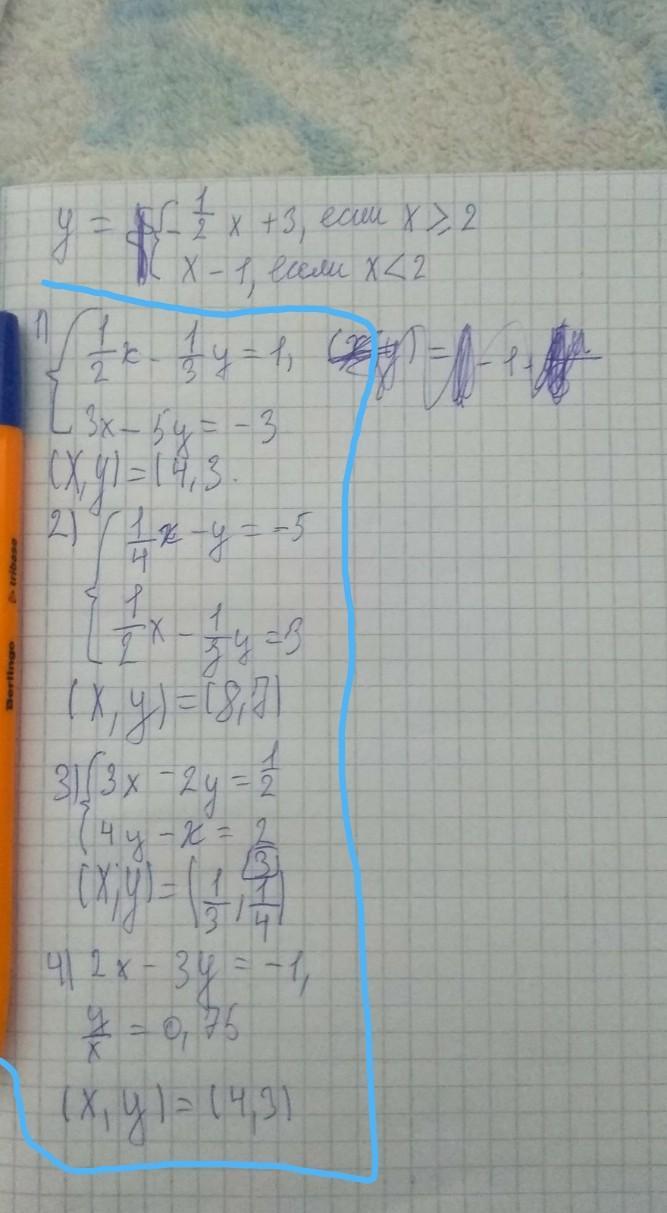 y = { -1/2 x + 3, если x ≥ 2
x - 1, если x < 2
1) { 1/2 x - 1/3 y = 1,
3x - 5y = -3
(x, y) = (4, 3.
2) { 1/4 x - y = -5
1/2 x - 1/3 y = 3
(x, y) = (8, 7)
3) { 3x - 2y = 1/2
4y - x = 2/3
(x, y) = (1/3, 1/4)
4) 2x - 3y = -1,
y/x = 0,75
(x, y) = (4, 3)
Berlingo tribase